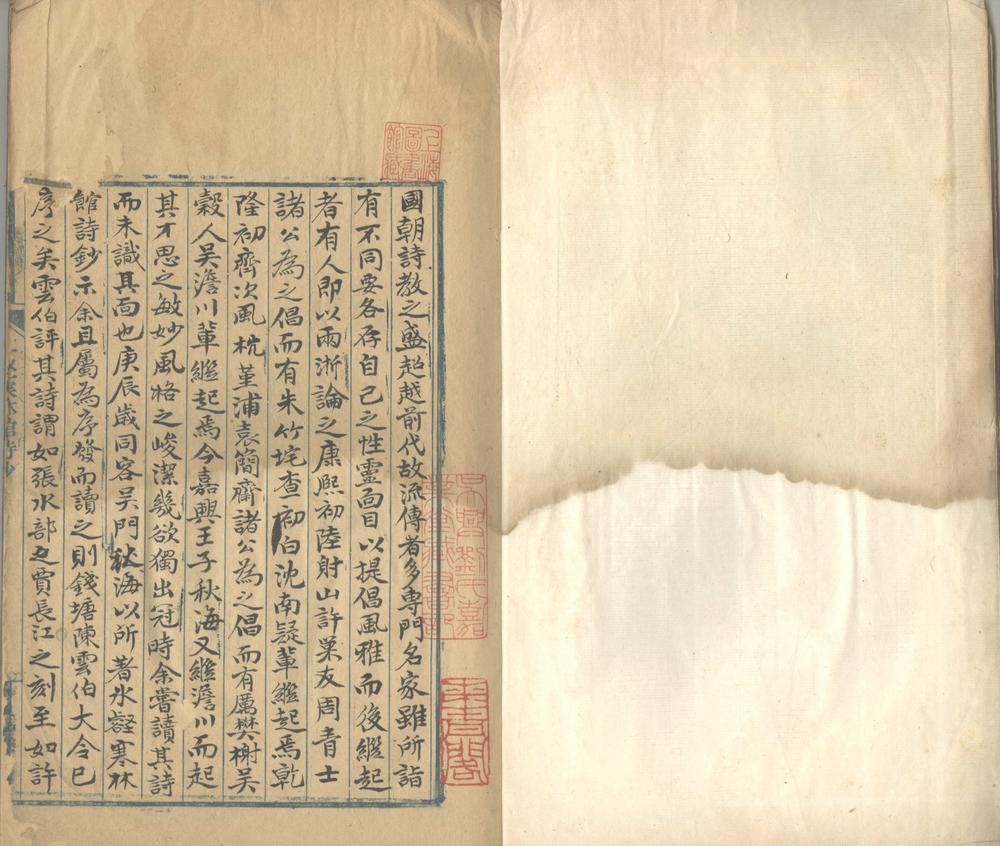 國朝詩教之盛超越前代故流傳者多專門名家雖所詣
有不同要各存自己之性靈面目以提倡風雅而後繼起
者有人即以兩浙論之康熙初陸射山許粟友周青士
諸公為之倡而有朱竹垞查初白沈南疑輩繼起焉乾
隆初齊次風杭堇浦袁簡齋諸公為之倡而有厲樊榭吳
穀人吳澹川輩繼起焉今嘉興王子秋海又繼澹川而起
其才思之敏妙風格之峻潔幾欲獨出冠時余嘗讀其詩
而未識其面也庚辰歲同客吳門秋海以所著氷壑寒林
館詩鈔示余且屬為序發而讀之則錢塘陳雲伯大令已
序之矣雲伯評其詩謂如張水部之賈長江之刻至如許
吳興劉氏嘉
業堂藏書記